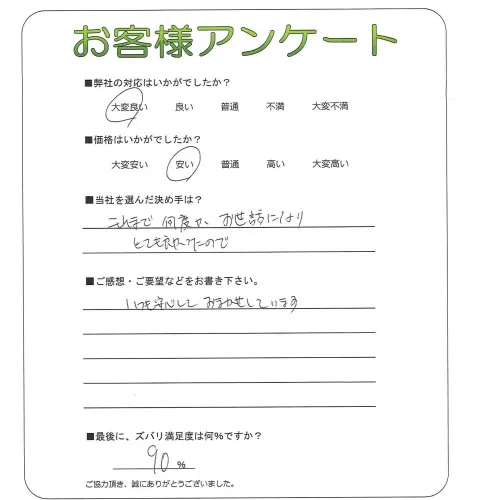 お客様アンケート
■弊社の対応はいかがでしたか？
大変良い 良い 普通 不満 大変不満
■価格はいかがでしたか？
大変安い 安い 普通 高い 大変高い
■当社を選んだ決め手は？
これまで 何度か、お世話になり
とても良かったので
■ご感想・ご要望などをお書き下さい。
いつも安心して おまかせしています
■最後に、ズバリ満足度は何%ですか？
90 %
ご協力頂き、誠にありがとうございました。